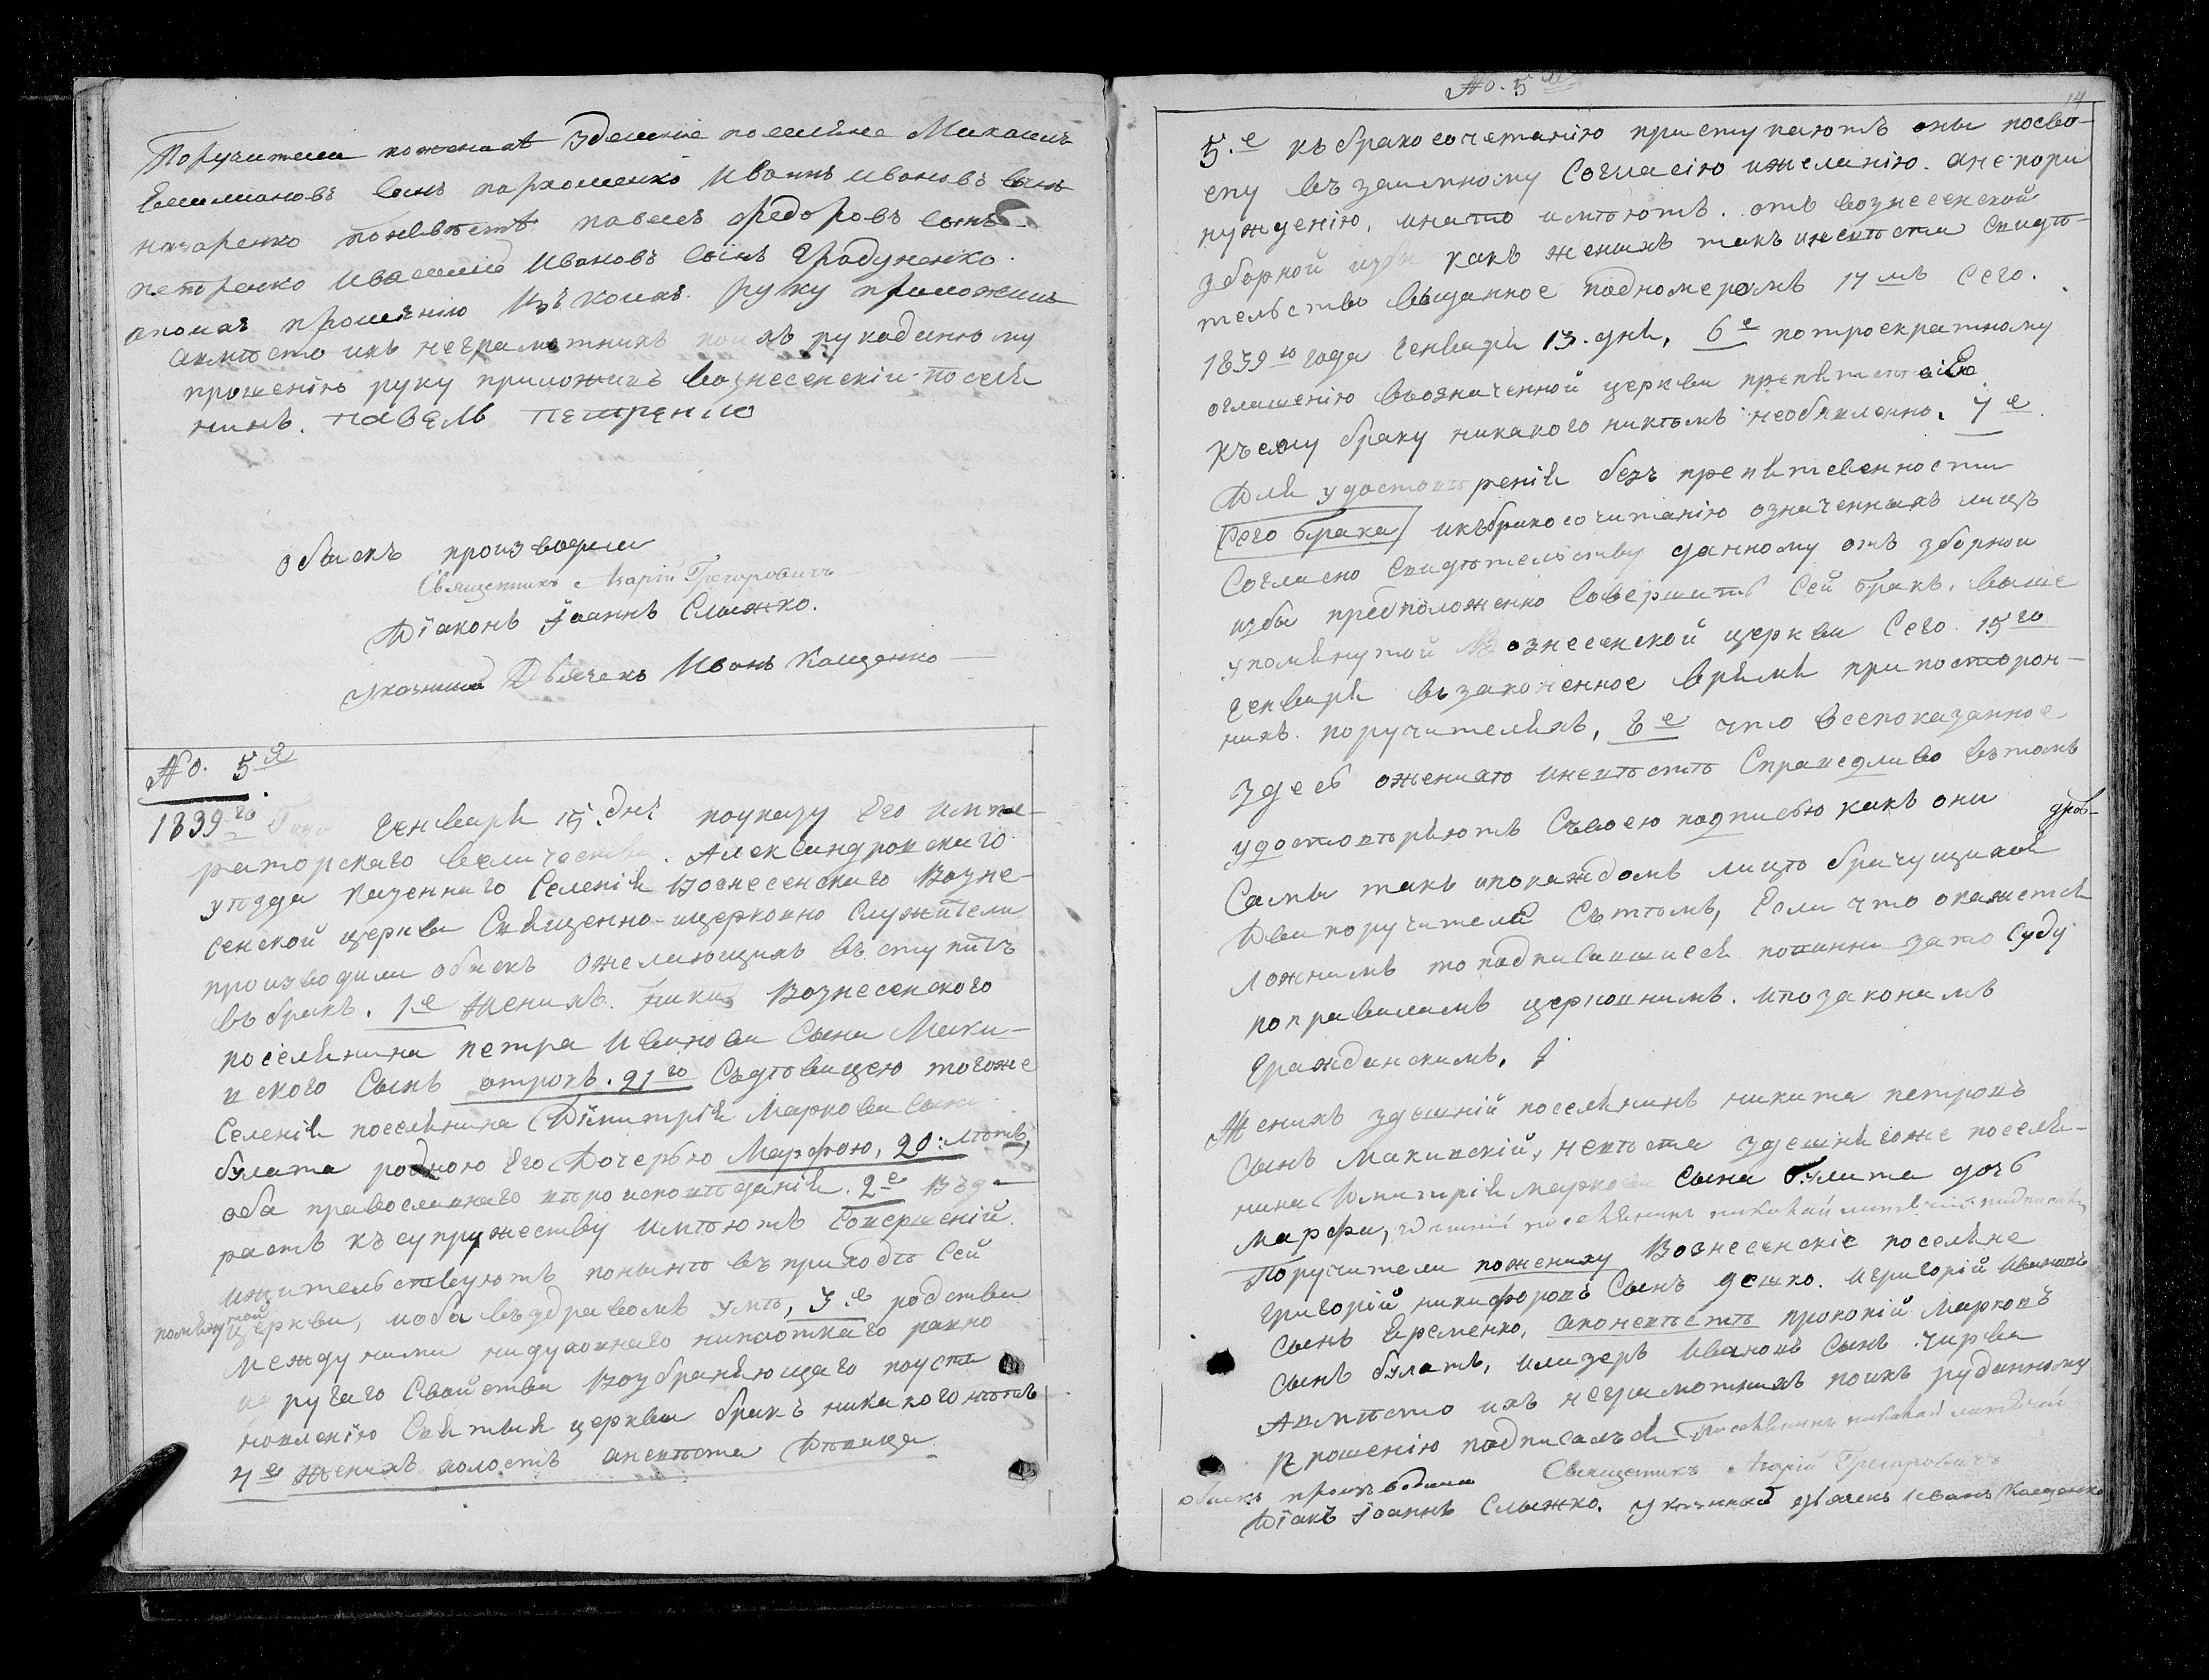 Поручители по женихѣ здешніе поселяне Михаилъ
Емелиановъ сынъ пархоменко Иванъ Ивановъ сынъ
назаренко по невѣстѣ павелъ федоровъ сынъ
петренко Ивасилій Ивановъ сынъ
прошенію руку приложилъ
авмѣсто ихъ неграмотнихъ поихъ рукоданному
прошенію руку приложилъ вознесенскій поселя
нинъ. павелъ петренко
Обыскъ производили
Священникъ Азарій Григоровичъ
Діаконъ Іоаннъ Слыжко.
указный Дьячекъ Иванъ Кащенко
No. 5й
1839го Года Генваря 15. дня поуказу Его импе-
раторскаго величества. Александровскаго
уѣзда казеннаго Селенія Вознесенскаго Возне-
сенской церкви Священно-церковно служители
производили обыскъ ожелающихъ вступить
въ бракъ. 1е Женихъ. Вознесенскаго
поселянина петра Иванова сына Маки-
вского Сынъ отрокъ. 21го Съдѣвицею тогоже
Селенія поселянина Димитрія Маркова сына
булата родною Его Дочерью Марфою, 20: лѣтъ,
оба православнаго вѣроисповѣданія. 2е Възд-
растъ къ супружеству имѣютъ Совершеній
ижительствуютъ понынѣ въ приходѣ Сей
помянутой церкви, иоба въздравомъ умѣ, 3е родства
между ними нидуховнаго ниплотскаго равно
идругаго Свойства возбраняющаго поуста
новленію Святыя церкви бракъ никакого нѣтъ
4е Женихъ холостъ аневѣста Дѣвица
No. 5й
14
5.е къ бракосочетанію приступаютъ оны посво-
ему възаимному Согласію ижеланію. анепопри
нужденію, инато имѣютъ. отъ вознесенской
зборной избы какъ женихъ такъ иневѣста свидѣ-
тельство выданное подномеромъ 17мъ сего.
1839го года Генваря 13. дня, 6е потроекратному
оглашенію въозначенной церкви препятствію
къ сему браку никакого никѣмъ необявленно. 7е
Для удостовѣренія безъ препятсвенности
сего брака икъбракосочитанію означенныхъ лицъ
Согласно Свидѣтельству данному отъ зборной
избы предположенно Совершить Сей бракъ. выше
упомянутой Вознесенской церкви Сего 15го
Генваря въ законенное врѣмя припосторон-
нихъ. поручителяхъ, 8е что всепоказанное
здесь оженихѣ иневѣстѣ Справедливо въ томъ
удостовѣряютъ Съвоею подписью какъ они
Сами такъ ипокаждомъ лицѣ брачущихся
Два поручителя Сътѣмъ, Если что окажется
ложнымъ то подписавшиеся повинни зато Суду
поправиламъ церковнимъ. ипозаконамъ
гражданскимъ.
Женихъ здѣшній поселянинъ никита петровъ
Сынъ Макивскій, невѣста здешнягоже поселя-
нина Димитрія маркова сына булата дочь
Марфа,
Поручители пожениху Вознесенскіе поселяне
григорій никифоровъ Сынъ дешко. игригорій Ивановъ
сынъ Еременко, апоневѣстѣ прокопій Марковъ
сынъ булатъ, илазеръ Ивановъ сынъ чирва
Авмѣсто ихъ неграмотныхъ поихъ руданному
прошенію подписался Поселянинъ
обыскъ производили Священникъ Азарій Григоровичъ
Діакъ Іоаннъ Слыжко. указный дьячекъ Иванъ Кащенко